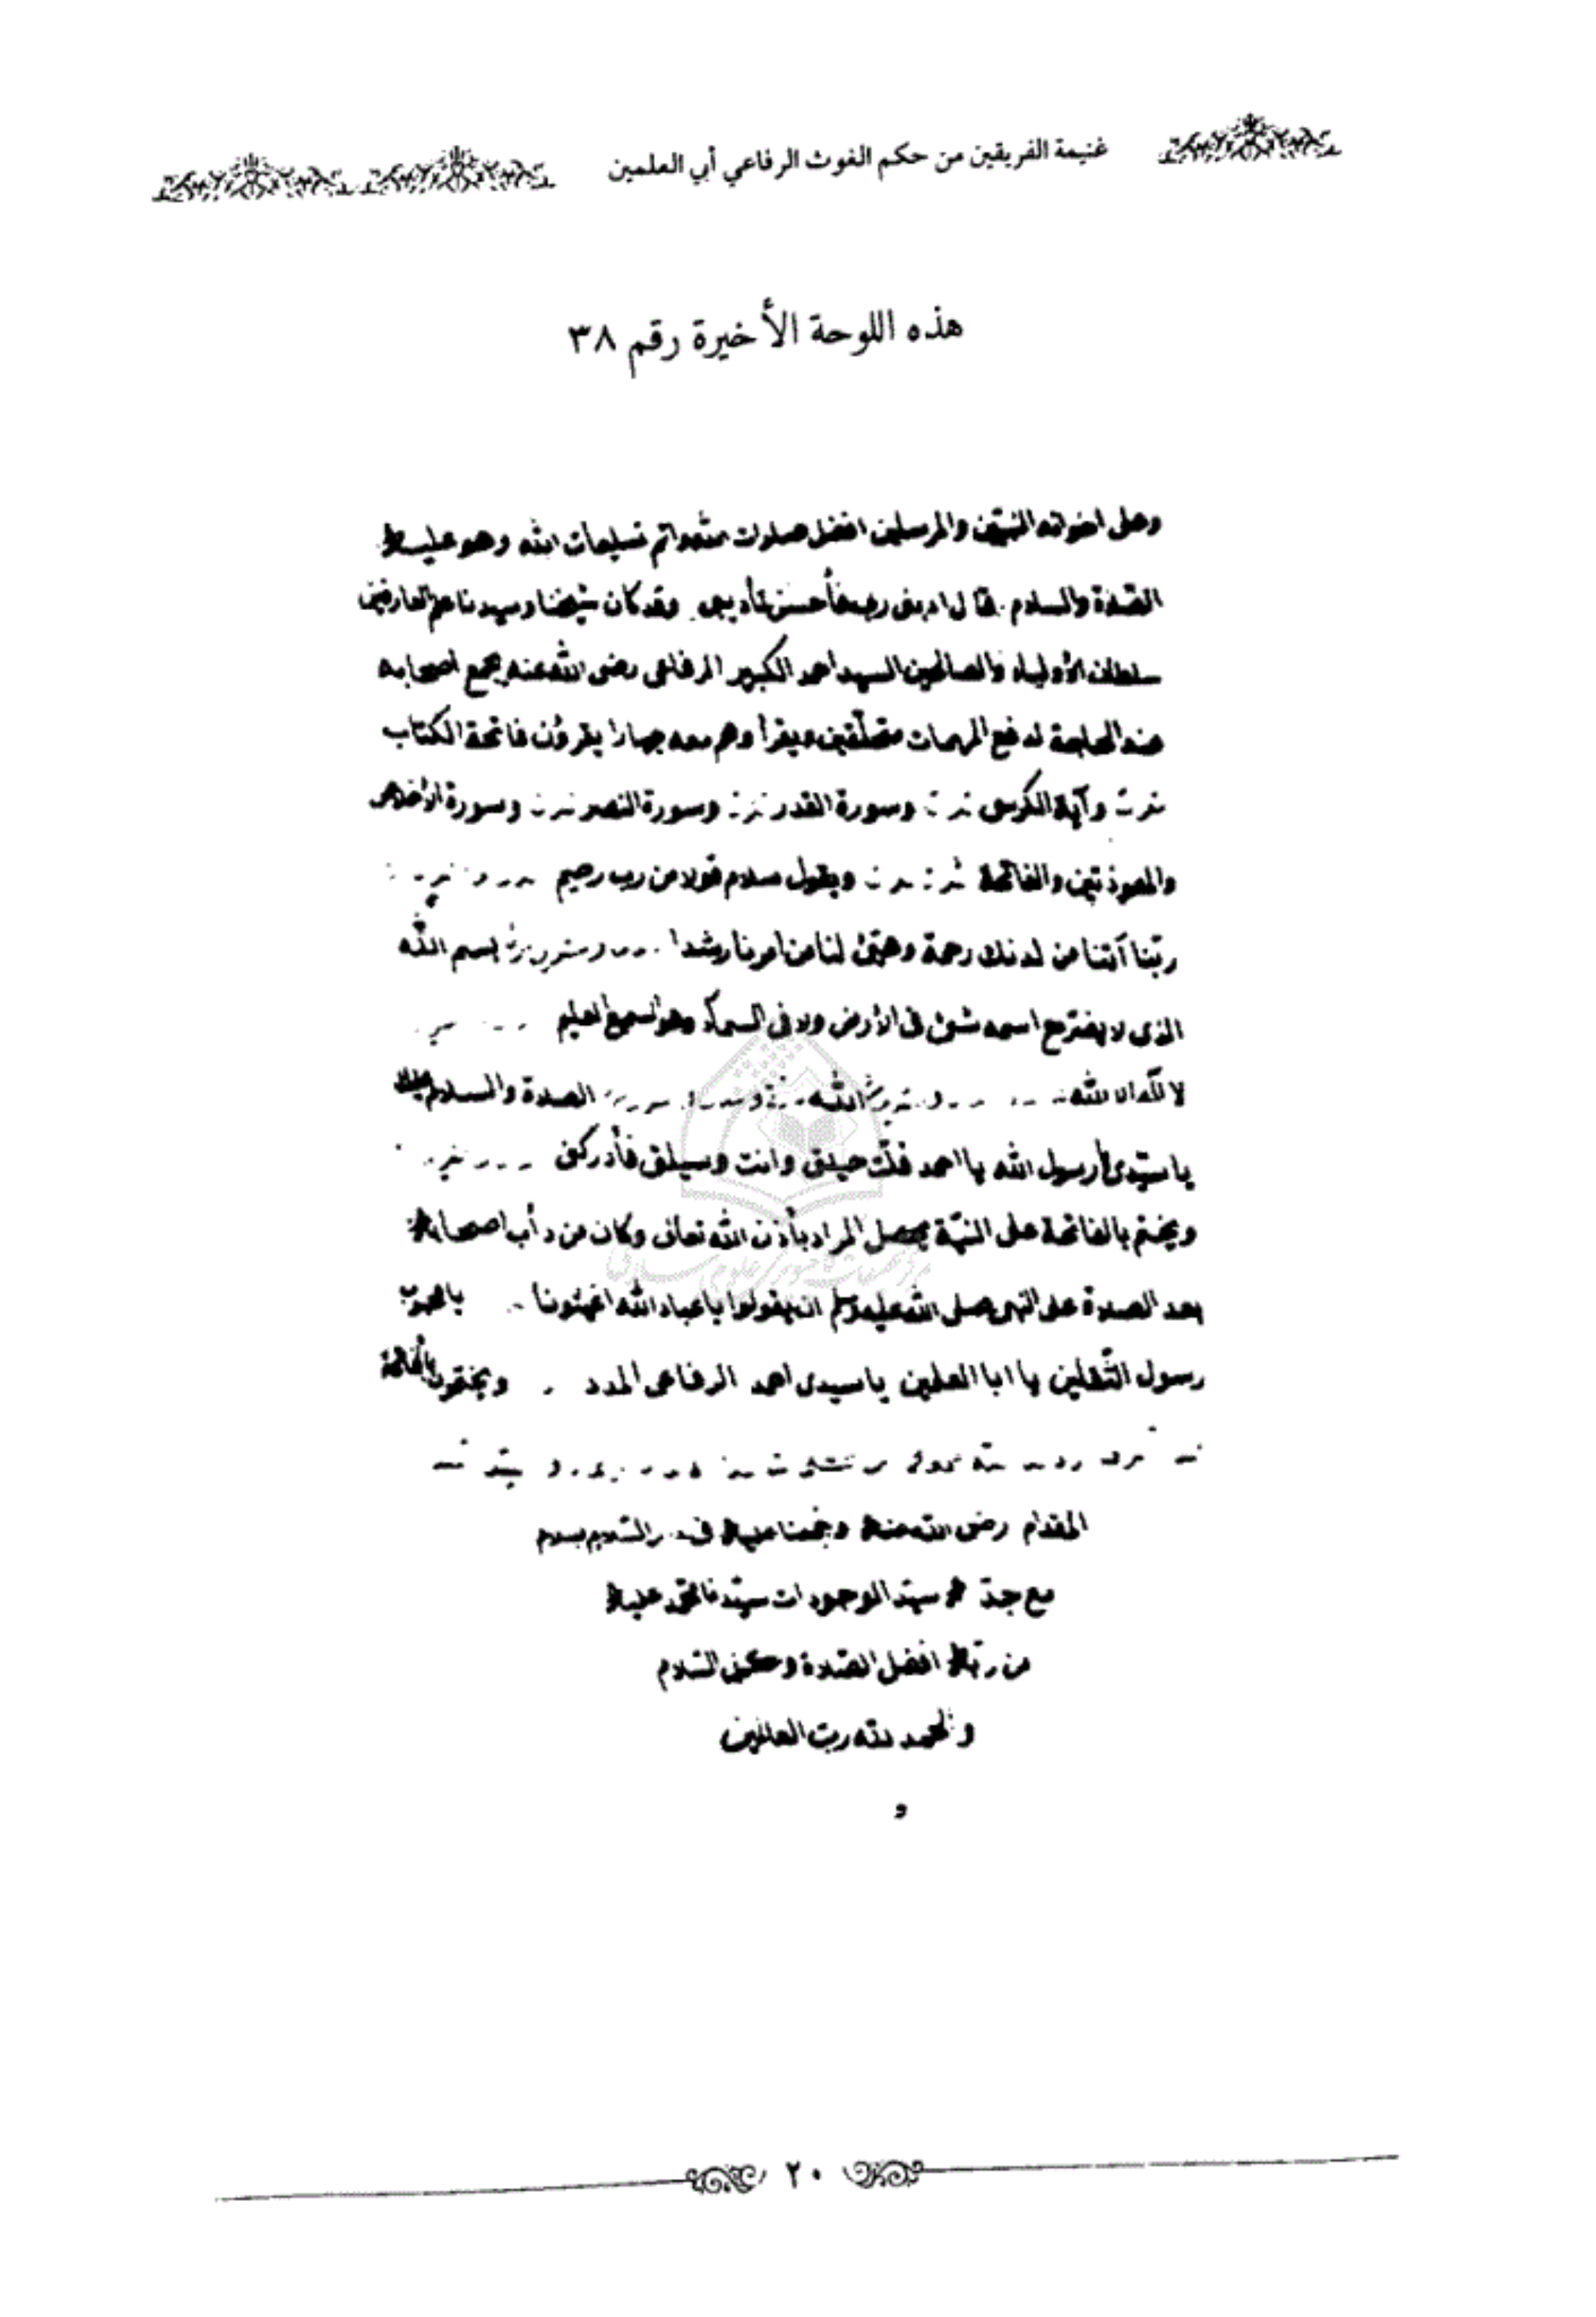 غنيمة الفريقين من حكم الغوث الرفاعي أبي العلمين
هذه اللوحة الأخيرة رقم ٣٨
وعلى اخوانه النبيّين والمرسلين افضل صلوات الله واتم تسليمات الله وهو عليه
الصّلاة والسلام قال ادبنى ربى فأحسن تأديبى وقد كان شيخنا وسيدنا علم العارفين
سلطان الأولياء والصالحين السيد احمد الكبير الرفاعى رضى الله عنه يجمع اصحابه
عند الحاجة لدفع المهمات متحلّقين ويقرأ وهم معه جهارا يقرؤن فاتحة الكتاب
وآية الكرسى وسورة القدر وسورة النصر وسورة الأخلاص
والمعوذتين والفاتحة ويقول سلام قولا من رب رحيم
ربّنا آتنا من لدنك رحمة وهيّئ لنا من امرنا رشدا بسم الله
الذى لا يضر مع اسمه شئ فى الأرض ولا فى السماء وهو السميع العليم
لا اله الا الله الله الصلاة والسلام عليك
يا سيّدى يا رسول الله يا احمد قلّت حيلتى وانت وسيلتى فأدركنى
ويختم بالفاتحة على النيّة يحصل المراد بأذن الله تعالى وكان من دأب اصحابه
بعد الصلاة على النبى صلى الله عليه وسلم ان يقولوا يا عباد الله اغيثونا
رسول الثّقلين يا ابا العلمين يا سيدى احمد الرفاعى المدد ويختمون بالفاتحة
المقدام رضى الله عنه السّلام بسلام
مع جدّه سيّد الموجودات سيّدنا محمّد عليه
من ربّه افضل الصّلاة السّلام
والحمد لله ربّ العالمين
و
٢٠